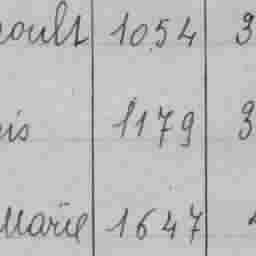 oult 1054 3
is 1179 3
Marie 1647